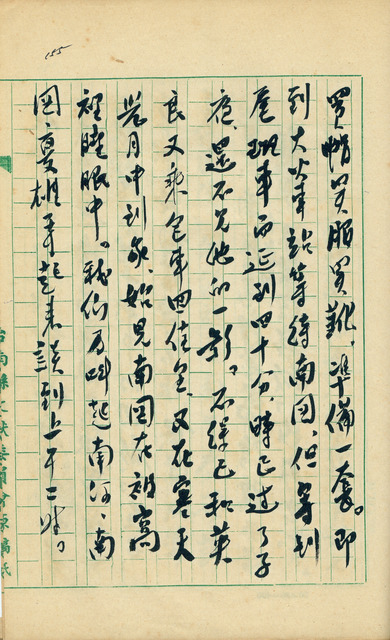 155
買帽買服買靴、準備一套。即
到大火車站等待南図、但等到
尾班車而延到四十分、時已過了子
夜、還不見他的一影。不得已和英
良又乘包車回住宅、又在寒天
荒月中到家、始見南図在被窩
裡睡眼中。我們乃叫起南河、南
図、夏雄等起來談到上午二時。
台南縣文獻委員會原稿紙